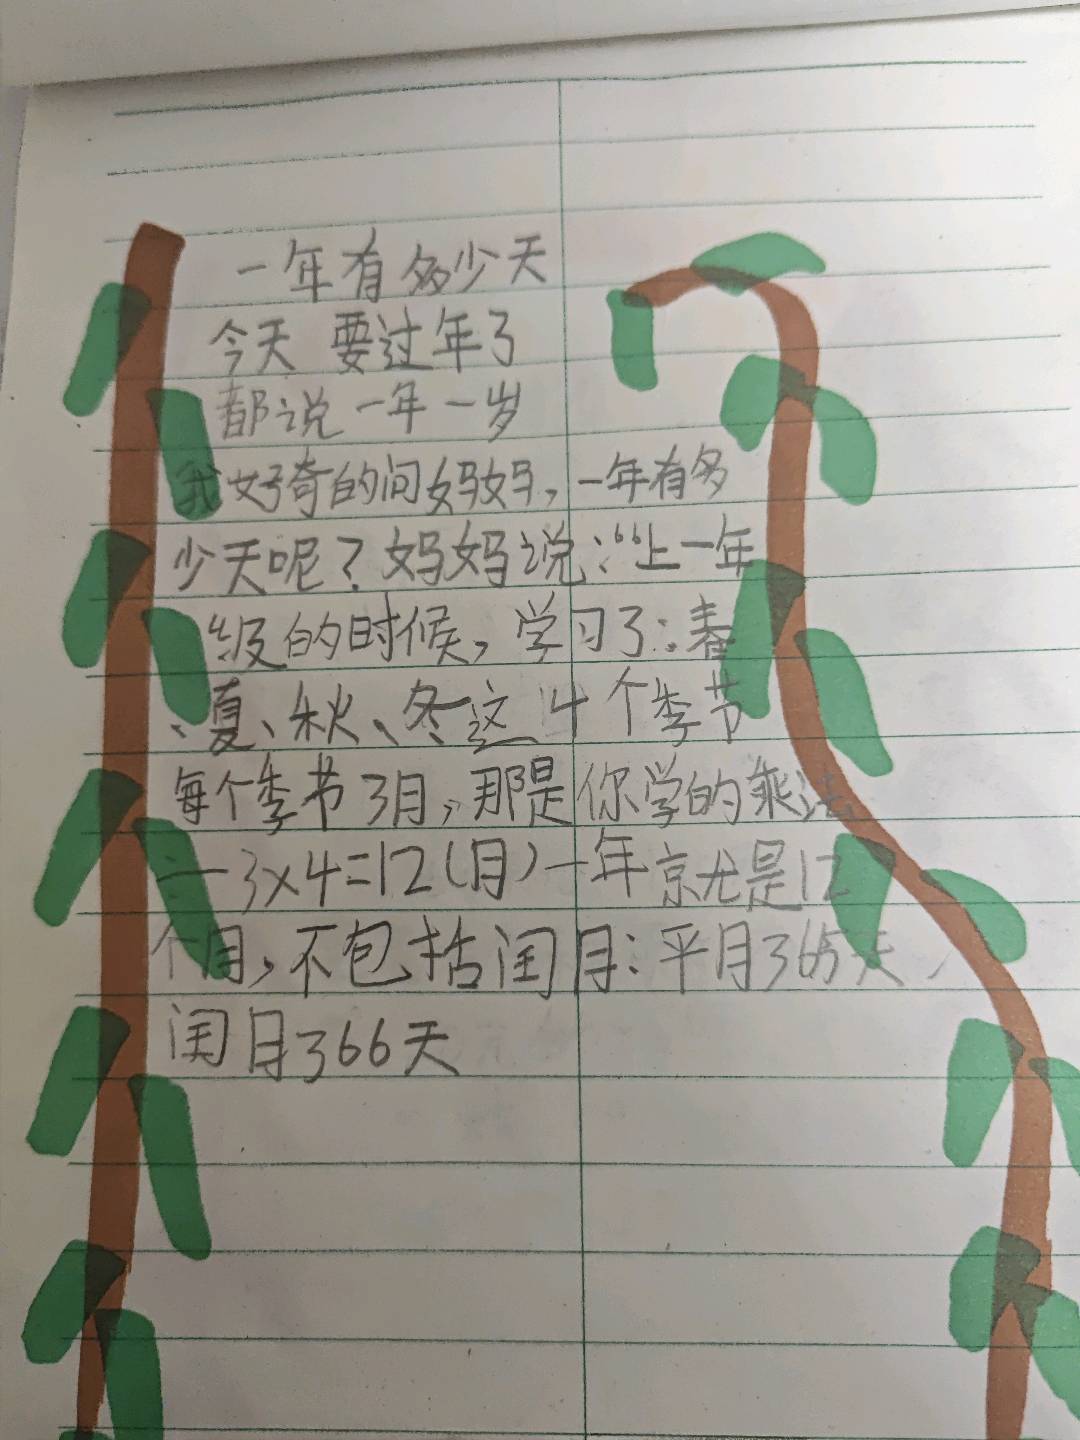 一年有多少天
今天 要过年了
都说一年一岁
我好奇的问妈妈，一年有多
少天呢？妈妈说：“上一年
级的时候，学习了：春
、夏、秋、冬这4个季节
每个季节3月，那是你学的乘法
：一3×4=12（月）一年就是12
个月，不包括闰月：平月365天，
闰月366天